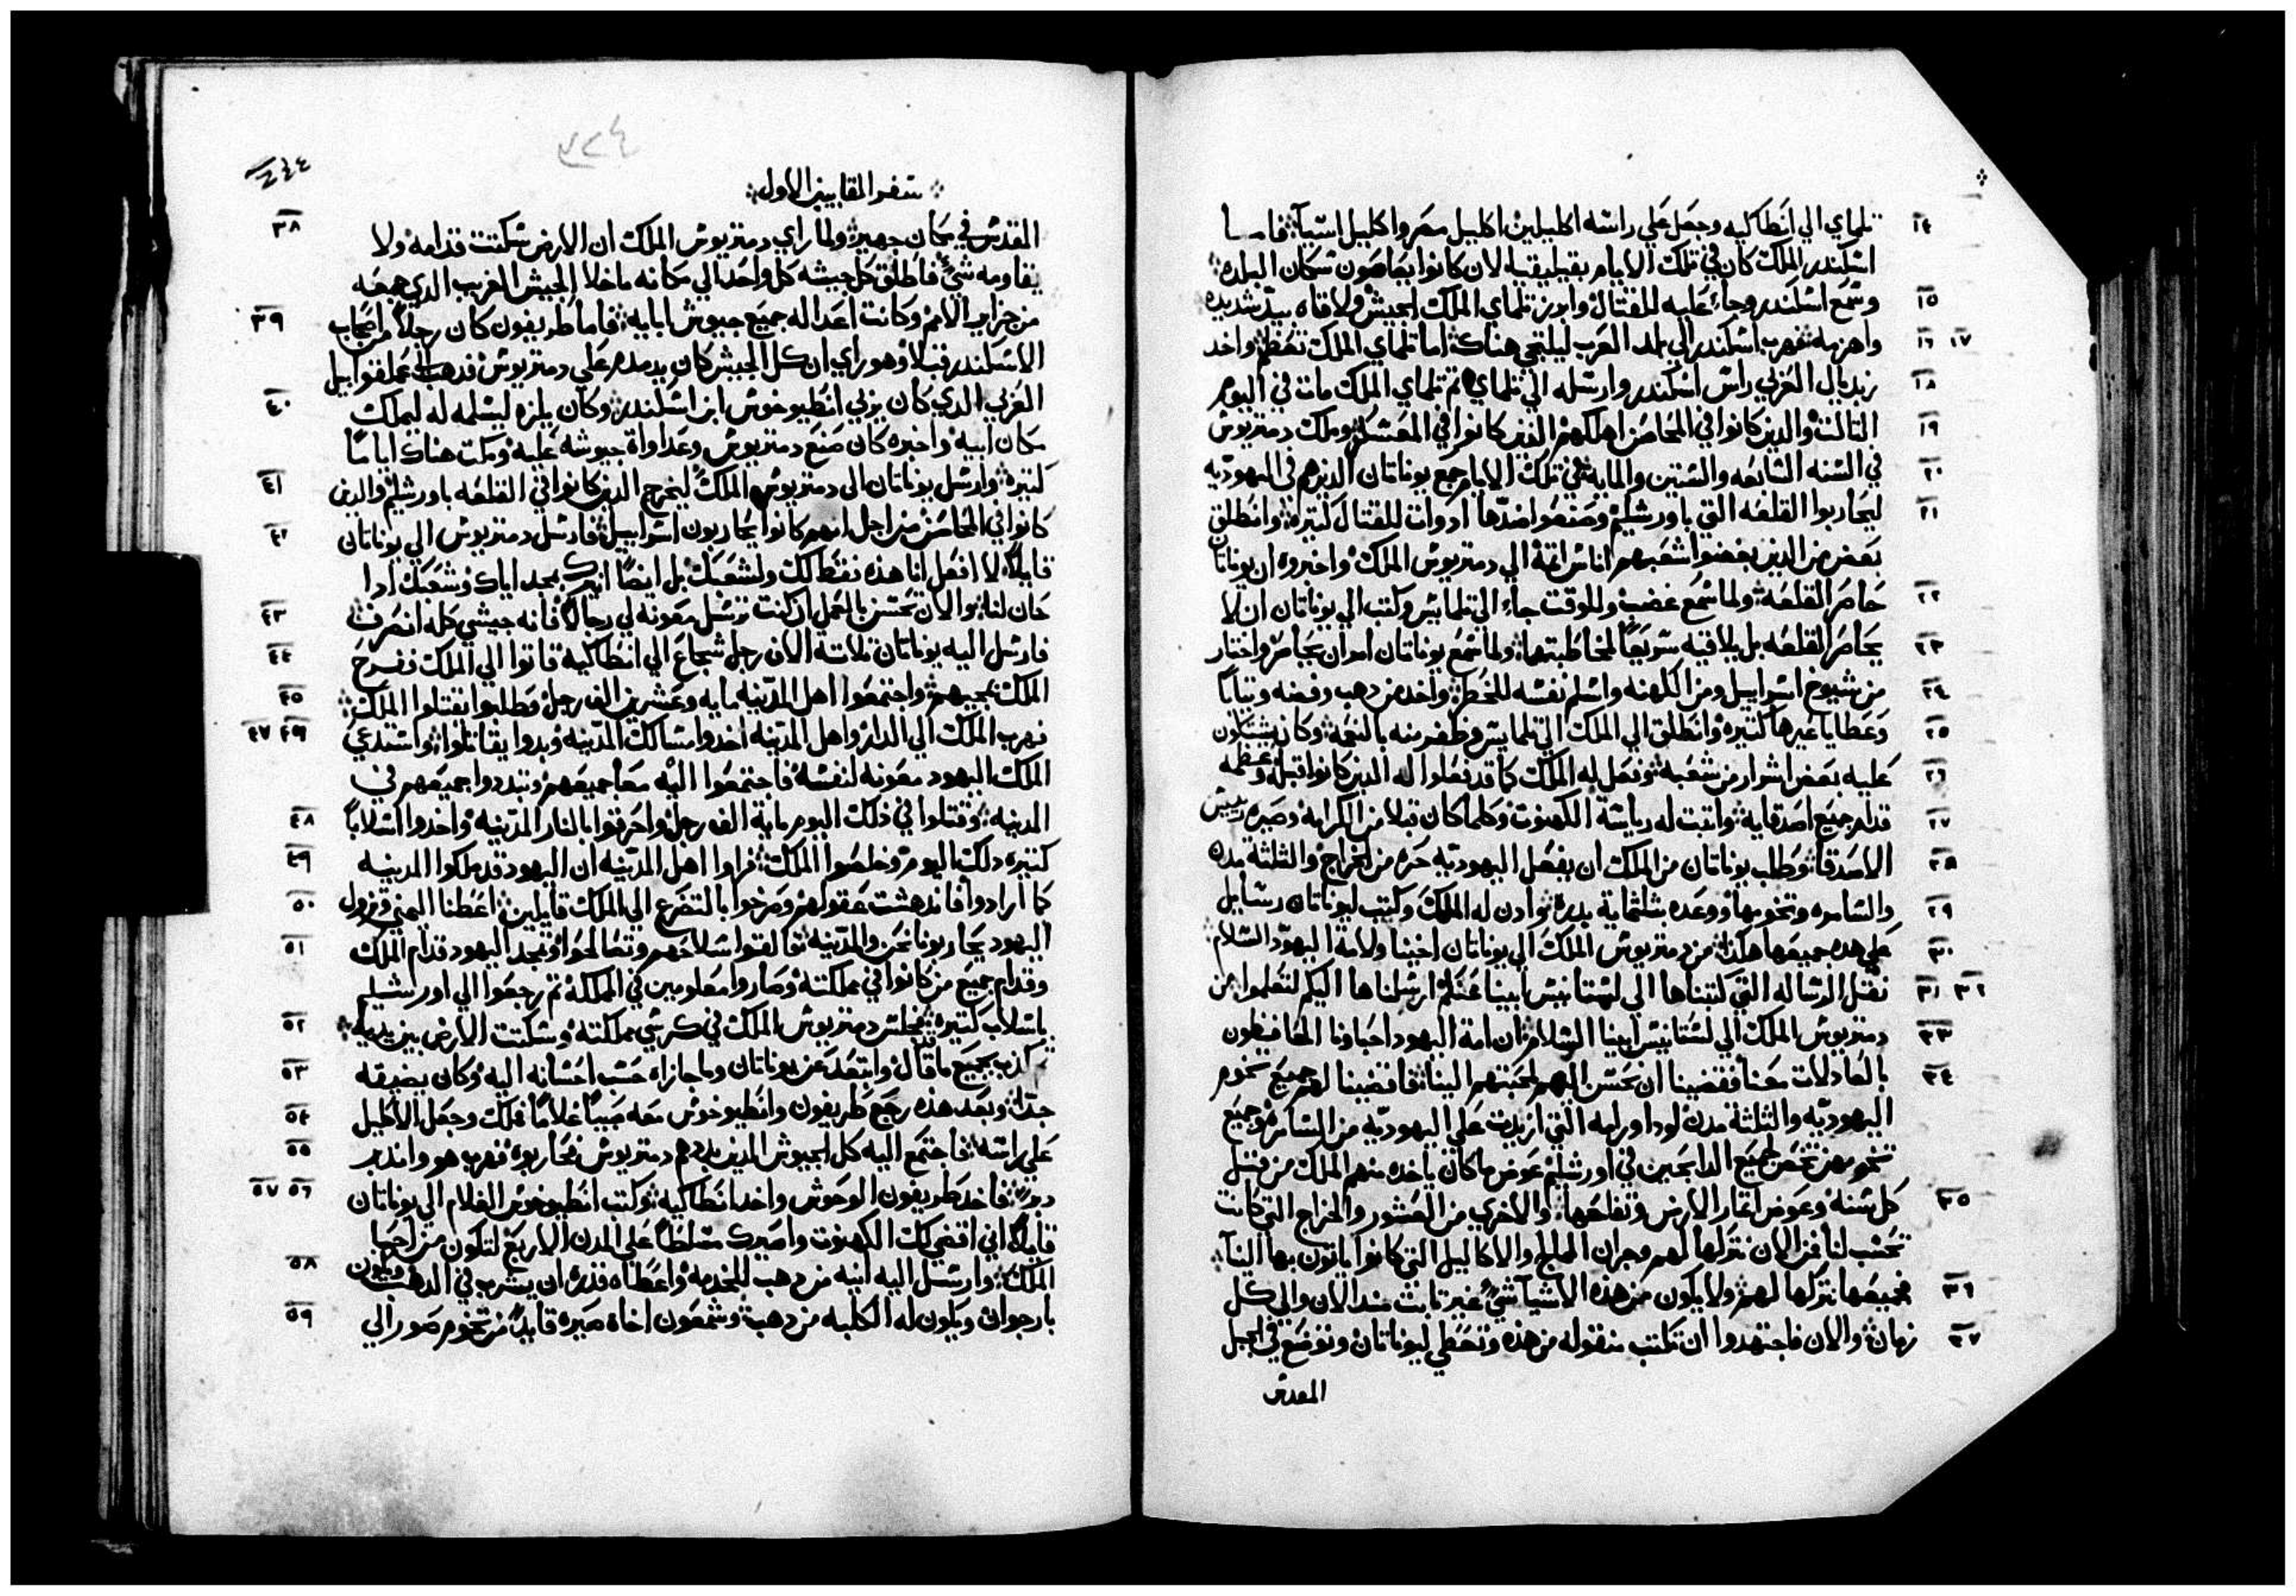 ١٤ تلماي الي انطاكيه وجعل علي راسه اكليلين اكليل مصر واكليل اسيا فاما
اسكندر الملك كان في تلك الايام بقيليقيه لان كانوا يعاصون سكان البلده
١٥ وسمع اسكندر وجاء عليه للقتال وابرز تلماي الملك الجيش ولاقاه بيد شديده
١٦ ١٧ واهزمه فهرب اسكندر الي بلد العرب ليلتجي هناك اما تلماي الملك تعظم واخد
١٨ زبديال العربي راس اسكندر وارسله الي تلماي ثم تلماي الملك مات في اليوم
١٩ التالت والدين كانوا في المحاصن اهلكهم الدين كانوا في المعسكر وملك دمتريوس
٢٠ في السنه السابعه والستين والمايه في تلك الايام جمع يوناتان الدين هم في اليهوديه
٢١ ليحاربوا القلعه التي باورشليم وصنعوا ضدها ادوات للقتال كتيره وانطلق
بعض من الدين يبغضوا شعبهم اناس اتمة الي دمتريوس الملك واخبروه ان يوناتان
٢٢ حاصر القلعه ولما سمع غضب وللوقت جاء الي تلمايس وكتب الي يوناتان ان لا
٢٣ يحاصر القلعه بل يلاقيه سريعا لمخاطبتها ولما سمع يوناتان امر ان يحاصر واختار
٢٤ من شيوخ اسراييل ومن الكهنه واسلم نفسه للخطر واخد من دهب وفضه وتيابا
٢٥ وعطايا غيرها كتيره وانطلق الي الملك الي تلمايس وظفر منه بالنعمه وكان يشتكون
٢٦ عليه بعض اشرار من شعبه وفعل له الملك كما قد فعلوا له الدين كانوا قبله وعظمه
٢٧ قدام جميع اصدقايه واتبت له رياسة الكهنوت وكلما كان قبلا من الكرامه وصيره رييس
٢٨ الاصدقا وطلب يوناتان من الملك ان يفعل اليهوديه حره من الخراج والثلثة مدن
٢٩ والسامره وتخومها ووعده بثلثماية بدره وادن له الملك وكتب ليوناتان رسايل
٣٠ علي هده جميعها هكذا من دمتريوس الملك الي يوناتان اخينا ولامة اليهود السلام
٣١ ٣٢ نقتل الرساله التي كتبناها الي لستانيس ابينا عنكم ارسلناها اليكم لتعلموا من
٣٣ دمتريوس الملك الي لستانيس ابينا السلام ان امة اليهود احباونا الحافظون
٣٤ بالعادلات معنا فقضينا ان نحسن اليهم لمحبتهم الينا فاقضينا لهم جميع تخوم
اليهوديه والثلثة مدن لود اورامه التي ازيدت علي اليهوديه من السامره وجميع
تخومهن تخص لجميع الدابحين في اورشليم عوض ما كان ياخده منهم الملك من قبل
٣٥ كل سنه وعوض اتمار الارض وتفاحها والاخري من العشور والخراج التي كانت
تحسب لنا فمن الان نتركها لهم وجران الملح والاكاليل التي كانوا ياتون بها الينا
٣٦ فجميعها نتركها لهم ولا يكون من هذه الاشيا شي غير تابت مند الان والي كل
٣٧ زمان والان فاجتهدوا ان تكتب منقوله من هذه وتعطي ليوناتان وتوضع في الجبل
المقدس
٢٤٤
سفر المقابيين الاول
٣٨ المقدس في مكان جهير ولما راي دمتريوس الملك ان الارض سكنت قدامه ولا
يقاومه شي فاطلق كل جيشه كل واحد الي مكانه ما خلا الجيش الغريب الدي جمعه
٣٩ من جزاير الامم وكانت اعدا له جميع جيوش ابايه فاما طريفون كان رجلا من اصحاب
الاسكندر قبلا وهو راي ان كل الجيش كان يدمدم علي دمتريوس فدهب الي عملقواييل
٤٠ العربي الدي كان يربي انطيوخوس ابن اسكندر وكان يلزه ليسلمه له ليملك
مكان ابيه واخبره كان صنع دمتريوس وعداواة جيوشه عليه ومكت هناك اياما
٤١ كتيره وارسل يوناتان الي دمتريوس الملك ليخرج الدين كانوا في القلعه باورشليم والدين
٤٢ كانوا في المحاصن من اجل انهم كانوا يحاربون اسراييل فارسل دمتريوس الي يوناتان
قايلا لا افعل انا هذه فقط لك ولشعبك بل ايضا اشرك بمجد اياك وشعبك ادا
٤٣ حان لنا والان تحسن بالعمل ان كنت ترسل معونه لي رجالا فانه جيشي كله انصرف
٤٤ فارسل اليه يوناتان تلاتة الاف رجل شجاع الي انطاكيه فاتوا الي الملك ففرح
٤٥ الملك بمجيهم واجتمعوا اهل المدينه مايه وعشرين الف رجل وطلبوا يقتلوا الملك
٤٦ ٤٧ فهرب الملك الي الدار واهل المدينه اخدوا مسالك المدينه وبدوا يقاتلوا واستدعي
الملك اليهود معونه لنفسه فاجتمعوا اليه معا جميعهم وتبددوا جميعهم في
٤٨ المدينه وقتلوا في ذلك اليوم ماية الف رجل واحرقوا بالنار المدينه واخدوا اسلابا
٤٩ كتيره دلك اليوم وخلصوا الملك فراوا اهل المدينه ان اليهود قد ملكوا المدينه
٥٠ كما ارادوا فاندهشت عقولهم وصرخوا بالتضرع الي الملك قايلين اعطنا اليمني وتزول
٥١ اليهود يحاربونا نحن والمدينه فالقوا سلاحهم وتصالحوا وتمجد اليهود قدام الملك
وقدام جميع من كانوا في مملكته وصاروا معلومين في المملكة تم رجعوا الي اورشليم
٥٢ باسلاب كتيره فجلس دمتريوس الملك في كرسي مملكته وسكتت الارض بين يديه
٥٣ كذب بجميع ما قال وابتعد عن يوناتان وما جازاه حسب احسانه اليه وكان يضيقه
٥٤ جدا وبعد هذه رجع طريفون وانطيوخوس معه صبيا غلاما فملك وجعل الاكليل
٥٥ علي راسه فاجتمع اليه كل الجيوش الدين بددهم دمتريوس فحاربوه فهرب هو واندبر
٥٦ ٥٧ فاخد طريفون الوحوش واخد انطاكيه وكتب انطيوخوس الغلام الي يوناتان
قايلا اني اقضي لك الكهنوت واصيرك متسلطا علي المدن الاربع لتكون من احبا
٥٨ الملك وارسل اليه انيه من دهب للخدمه واعطاه قدره ان يشرب في الدهب ويكون
٥٩ بارجوان ويكون له الكلبه من دهب وشمعون اخاه صيره قايدا من تخوم صور الي